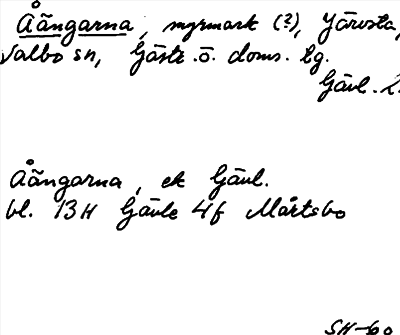 Åängarna, myrmark (?), Järvsta,
Valbo sn, Gästr. ö. doms. lg.
Gävl. l.
Åängarna, ek Gävl.
bl. 13H Gävle 4f Mårtsbo
SH-60